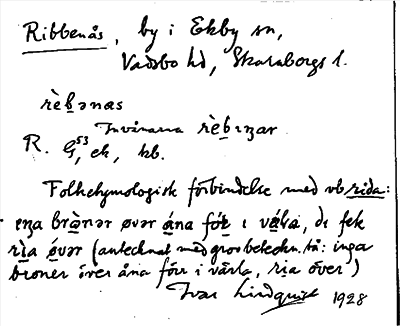 Ribbenås, by i Ekby sn,
Vadsbo hd, Skaraborgs l.
rèb̲ənas
Invånarna rèb̲ıŋar
R. G, ek, hb.
Folketymologisk förbindelse med vb rida:
eŋa bra̲nər øvər ána fór̲ ı vá̲la, dı fek
rìa ó̲vər (antecknat med grov beteckn. tå: inga
broner över åna förr i värla, ria över)
Ivar Lindquist 1928